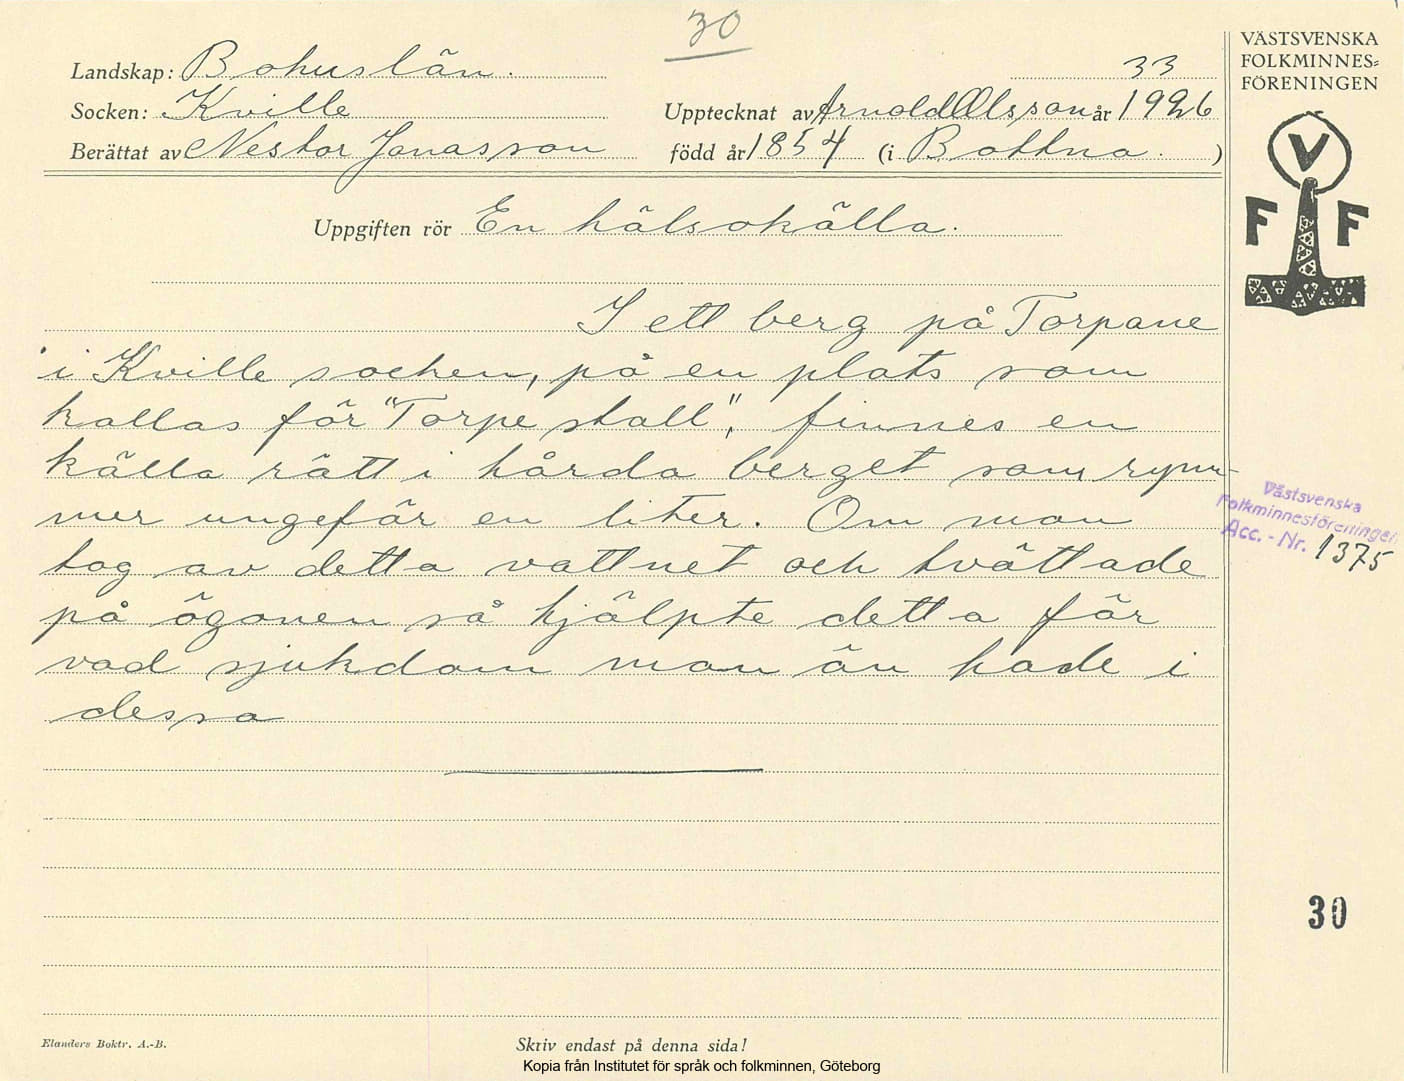 30
VÄSTSVENSKA
FOLKMINNES=
FÖRENINGEN
Landskap: Bohuslän.
33
Socken: Kville
Upptecknat av Arnold Olsson år 1926
Berättat av Nestor Jonasson
född år 1854 (i Bottna.)
V
F F
Uppgiften rör En hälsokälla.
I ett berg på Torpane
i Kville socken, på en plats som
kallas för "Torpe stall", finnes en
källa rätt i hårda berget som rym-
mer ungefär en liter. Om man
tog av detta vattnet och tvättade
på ögonen så hjälpte detta för
vad sjukdom man än hade i
dessa
Västsvenska
Folkminnesföreningen
Acc. - Nr. 1375
30
Elanders Boktr. A.-B.
Skriv endast på denna sida!
Kopia från Institutet för språk och folkminnen, Göteborg